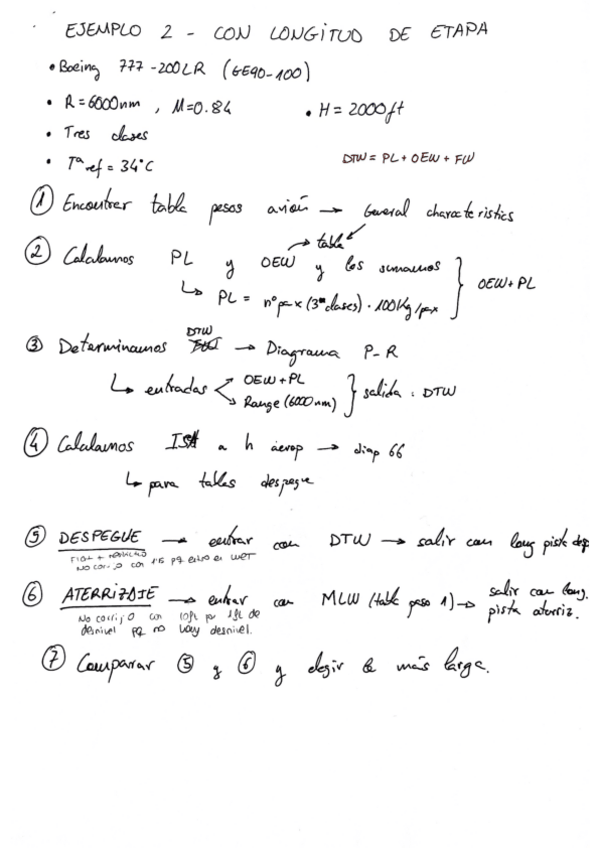 EJEMPLO 2 - CON LONGITUD DE ETAPA
• Boeing 777-200LR (GE90-100)
• R = 6000nm, M=0.84 • H = 2000ft
• Tres clases
• Tª ref = 34°C DTW = PL + OEW + FW
① Encontrar tabla pesos avión → General characteristics
→ tabla
② Calculamos PL y OEW y los sumamos } OEW + PL
↳ PL = nº pax (3 clases) · 100Kg/pax
DTW
③ Determinamos → Diagrama P-R
↳ entradas < OEW + PL } salida: DTW
Range (6000nm)
④ Calculamos ISA a h aerop → diap 66
↳ para tablas despegue
⑤ DESPEGUE → entrar con DTW → salir con long pista desp
No corrijo con pq entro en WET
⑥ ATERRIZAJE → entrar con MLW (tabla peso 1) → salir con long. pista aterriz.
No corrijo con por de
desnivel pq no hay desnivel.
⑦ Comparar ⑤ y ⑥ y elegir la más larga.